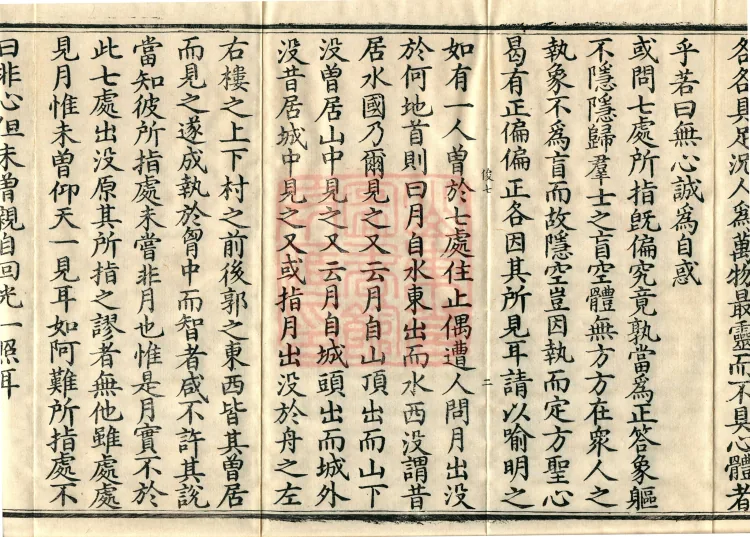 各各具足況人爲萬物最靈而不具心體者
乎若曰無心誠爲自惑
或問七處所指旣偏究竟孰當爲正答象軀
不隱隱歸羣士之盲空體無方方在衆人之
執象不爲盲而故隱空豈因執而定方聖心
曷有正偏偏正各因其所見耳請以喻明之
俊七
二
如有一人曾於七處住止偶遭人問月出没
於何地首則曰月自水東出而水西没謂昔
居水國乃爾見之又云月自山頂出而山下
没曾居山中見之又云月自城頭出而城外
没昔居城中見之又或指月出没於舟之左
右樓之上下村之前後郭之東西皆其曾居
而見之遂成執於胷中而智者咸不許其說
當知彼所指處未嘗非月也惟是月實不於
此七處出没原其所指之謬者無他雖處處
見月惟未曾仰天一見耳如阿難所指處不
曰非心但未曾親自回光一照耳